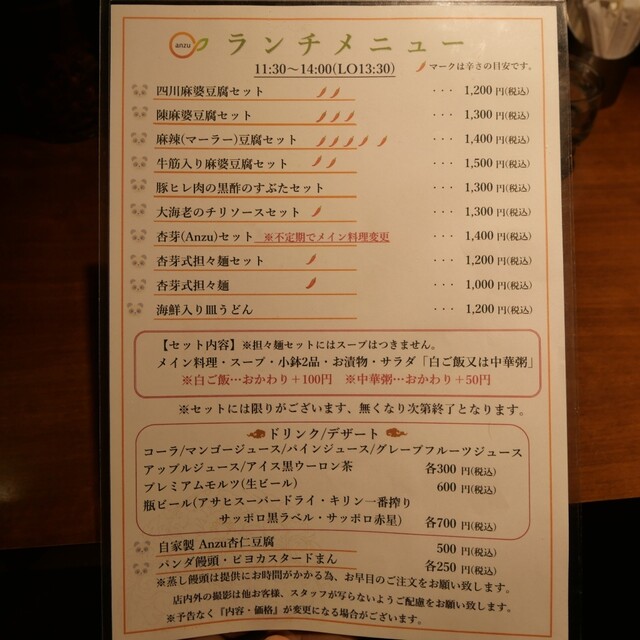 anzu ランチメニュー
11:30～14:00(LO13:30) マークは辛さの目安です。
四川麻婆豆腐セット ・・・ 1,200円(税込)
陳麻婆豆腐セット ・・・ 1,300円(税込)
麻辣(マーラー)豆腐セット ・・・ 1,400円(税込)
牛筋入り麻婆豆腐セット ・・・ 1,500円(税込)
豚ヒレ肉の黒酢のすぶたセット ・・・ 1,300円(税込)
大海老のチリソースセット ・・・ 1,300円(税込)
杏芽(Anzu)セット ※不定期でメイン料理変更 ・・・ 1,400円(税込)
杏芽式担々麺セット ・・・ 1,200円(税込)
杏芽式担々麺 ・・・ 1,000円(税込)
海鮮入り皿うどん ・・・ 1,200円(税込)
【セット内容】※担々麺セットにはスープはつきません。
メイン料理・スープ・小鉢2品・お漬物・サラダ「白ご飯又は中華粥」
※白ご飯…おかわり＋100円 ※中華粥…おかわり＋50円
※セットには限りがございます、無くなり次第終了となります。
ドリンク/デザート
コーラ/マンゴージュース/パインジュース/グレープフルーツジュース
アップルジュース/アイス黒ウーロン茶 各300円(税込)
プレミアムモルツ(生ビール) 600円(税込)
瓶ビール(アサヒスーパードライ・キリン一番搾り
サッポロ黒ラベル・サッポロ赤星) 各700円(税込)
自家製 Anzu杏仁豆腐 500円(税込)
パンダ饅頭・ピヨカスタードまん 各250円(税込)
※蒸し饅頭は提供にお時間がかかる為、お早目のご注文をお願い致します。
店内外の撮影は他お客様、スタッフが写らないようご配慮をお願い致します。
※予告なく『内容・価格』が変更になる場合がございます。